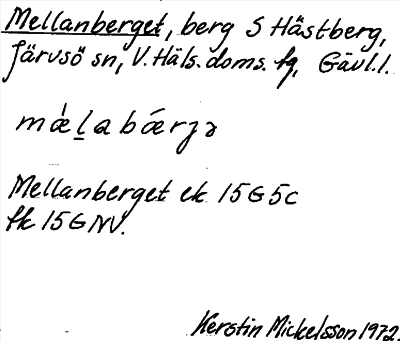 Mellanberget, berg S Hästberg,
Järvsö sn, V. Häls. doms. fg, Gävl.l.
mæ̀l̲abǽrjə
Mellanberget ek. 15G5c
fk 15G NV.
Kerstin Mickelsson 1972.